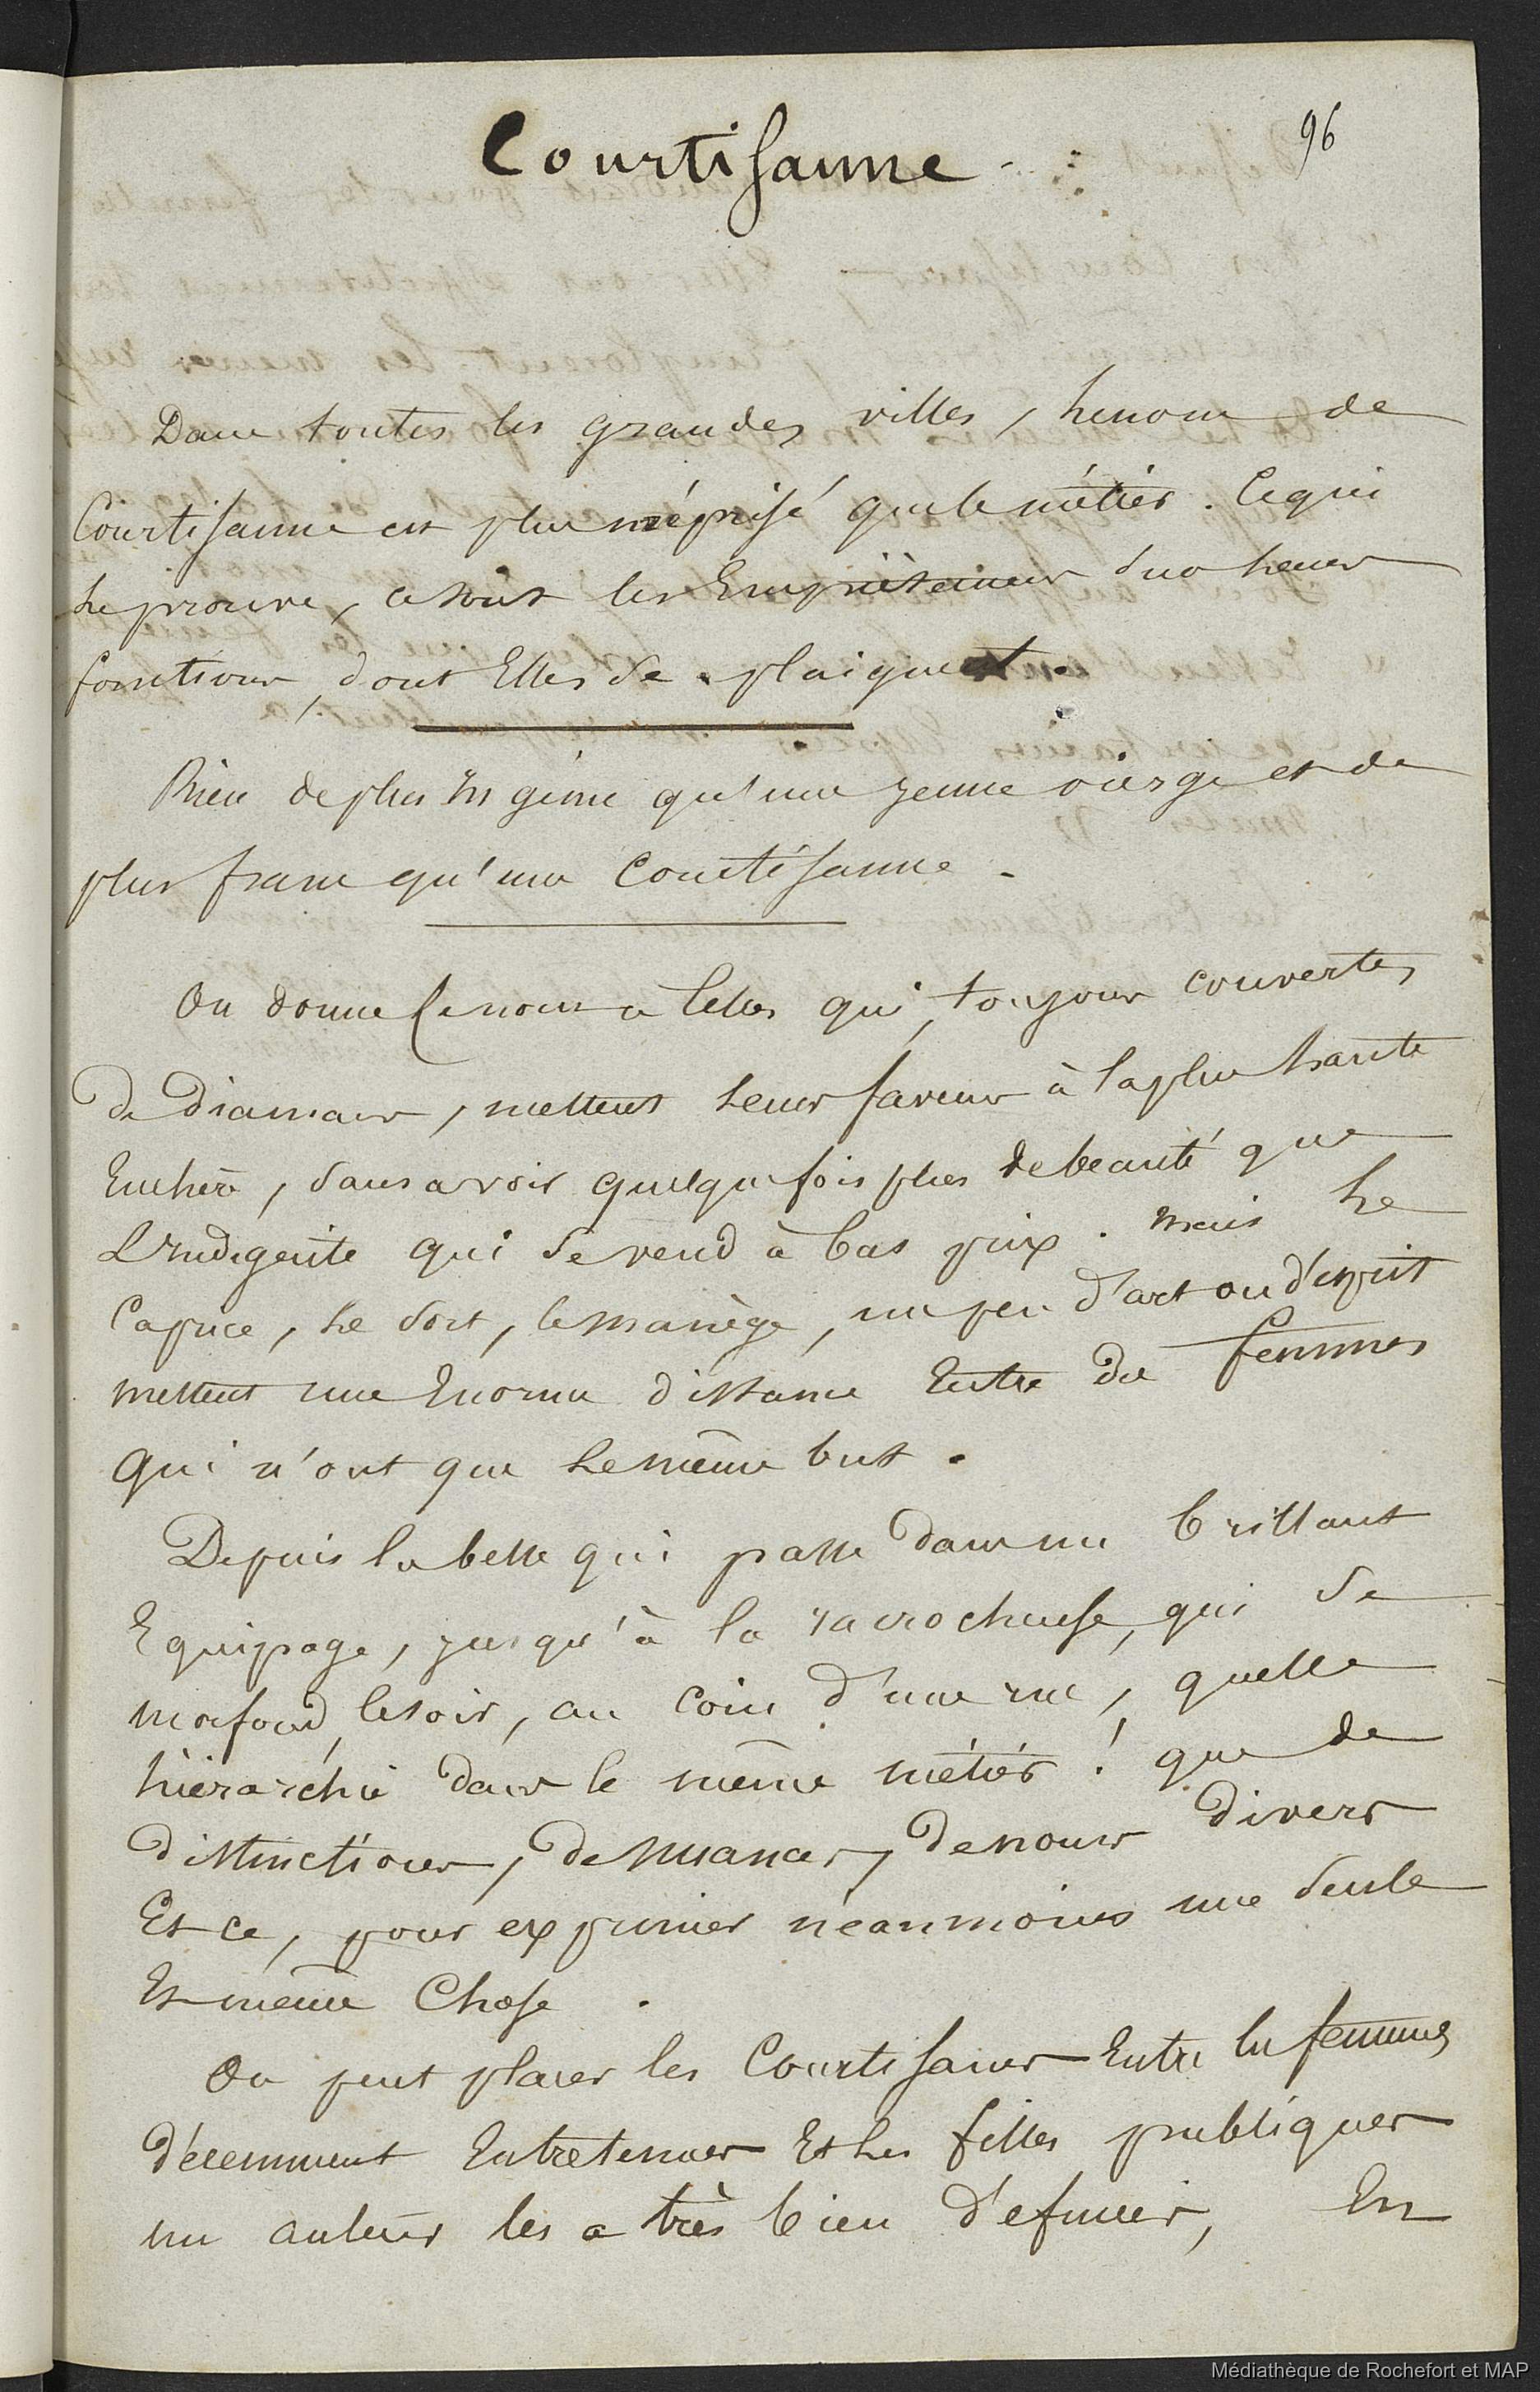 96
Courtisanne
Dans toutes les grandes villes, le nom de
Courtisanne est plus méprisé que le métier. Ce qui
le prouve, ce sont les Empiètemens sur leurs
fonctions, dont Elles se plaignent.
Rien de plus Ingénu qu'une jeune vierge et de
plus franc qu'une Courtisanne.
On donne ce nom a Celles qui, toujours couvertes
De Diamans, mettent leurs faveurs à la plus haute
Enchère, sans avoir quelquefois plus de beauté que
L'Indigente qui se vend à bas prix. Mais le
Caprice, le sort, le manège, un peu d'art ou d'esprit
mettent une Enorme distance Entre des femmes
qui n'ont que le même but.
Depuis la belle qui passe dans un brillant
Equipage, jusqu'à la racrocheuse, qui se
morfond, le soir, au coin d'une rue, quelle
hiérarchie dans le même métier! que de
distinctions, de nuances, de noms divers
Et ce, pour exprimer néanmoins une seule
Et même Chose.
On peut placer les Courtisanes Entre les femmes
décemment Entretenues Et les filles publiques
un auteur les a très bien définies, En
Médiathèque de Rochefort et MAP